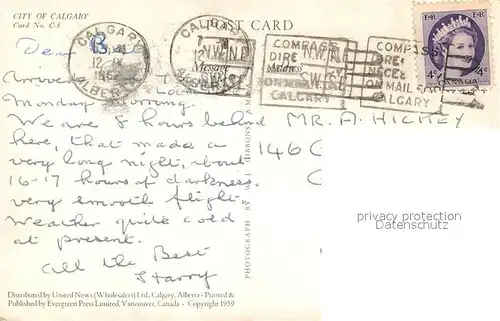 CITY OF CALGARY
Card No. C-8
POST CARD
CALGARY
ALBERTA
CALGARY
COMPASS
DIRE
N.W.
S.W.
ON MAIL FOR
CALGARY
COMPASS
DIRE
NECES
ON MAIL FOR
CALGARY
E II R E II R
4c 4c
CANADA
Message
Address
Dear
Arrived
Monday morning.
We are 8 hours behind
here, that made a
very long night, about
16-17 hours of darkness.
very smooth flight.
Weather quite cold
at present.
All the Best
Harry
MR. A. HICKEY
146 C
PHOTOGRAPH BY W. J. GIBBONS
privacy protection
Datenschutz
Distributed by United News (Wholesalers) Ltd., Calgary, Alberta - Printed &
Published by Evergreen Press Limited, Vancouver, Canada - Copyright 1959